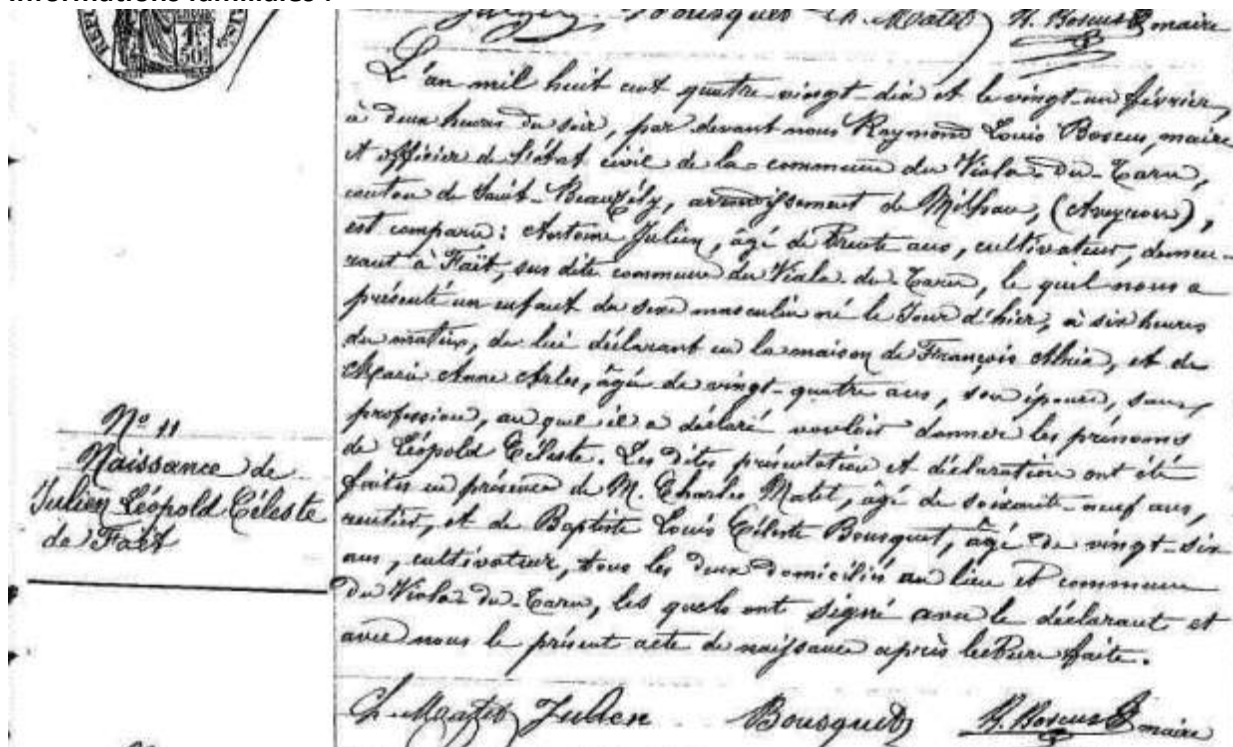 Informations familiales :
Bousquet Ch. Matet R. Boscus maire
L'an mil huit cent quatre-vingt-dix et le vingt-un février,
à deux heures du soir, par devant nous Raymond Louis Boscus, maire
et officier de l'état civil de la commune du Viala-du-Tarn,
canton de Saint-Beauzély, arrondissement de Milhau, (Aveyron),
est comparu : Antoine Julien, âgé de trente ans, cultivateur, demeu-
rant à Faït, sus dite commune du Viala-du-Tarn, le quel nous a
présenté un enfant du sexe masculin né le jour d'hier, à six heures
du matin, de lui déclarant en la maison de François Alric, et de
Marie Anne Arles, âgée de vingt-quatre ans, son épouse, sans
profession, au quel il a déclaré vouloir donner les prénoms
de Léopold Céleste. Les dites présentation et déclaration ont été
faites en présence de M. Charles Matet, âgé de soixante-neuf ans,
rentier, et de Baptiste Louis Céleste Bousquet, âgé de vingt-six
ans, cultivateur, tous les deux domiciliés au lieu et commune
du Viala-du-Tarn, les quels ont signé avec le déclarant et
avec nous le présent acte de naissance après lecture faite.
Nº 11
Naissance de
Julien Léopold Céleste
de Faït
Ch. Matet Julien Bousquet R. Boscus maire